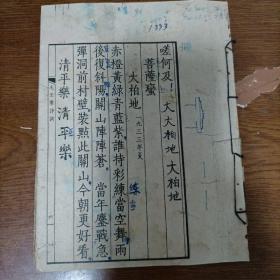 1933
嗟何及！大大柏地 大柏地
菩薩蠻
大柏地 一九三三年夏
赤橙黃綠青藍紫誰持彩練當空舞雨
後復斜陽關山陣陣蒼 當年鏖戰急
彈洞前村壁裝點此關山今朝更好看
清平樂 清平樂
毛主席詩詞